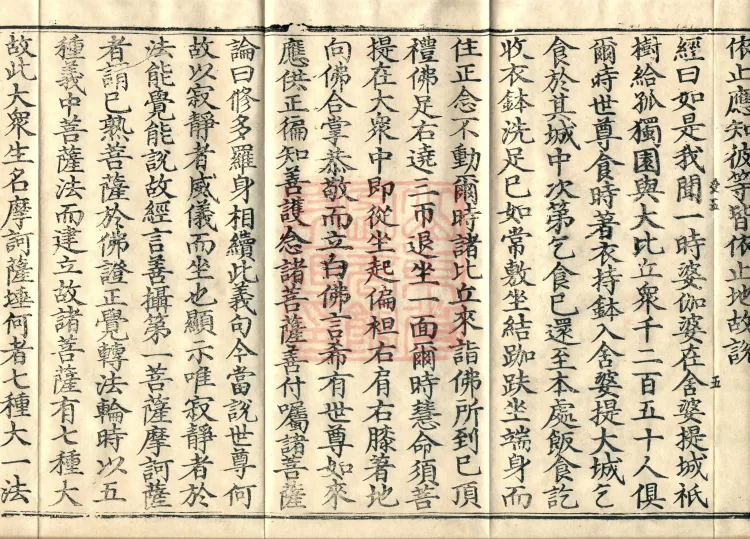 依止應知彼等皆依止地故說
經曰如是我聞一時婆伽婆在舍婆提城祇
樹給孤獨園與大比丘衆千二百五十人俱
爾時世尊食時著衣持鉢入舍婆提大城乞
食於其城中次第乞食已還至本處飯食訖
收衣鉢洗足已如常敷坐結跏趺坐端身而
住正念不動爾時諸比丘來詣佛所到已頂
禮佛足右遶三帀退坐一面爾時慧命須菩
提在大衆中即從坐起偏袒右肩右膝著地
向佛合掌恭敬而立白佛言希有世尊如來
應供正徧知善護念諸菩薩善付囑諸菩薩
論曰修多羅身相續此義句今當說世尊何
故以寂靜者威儀而坐也顯示唯寂靜者於
法能覺能說故經言善攝第一菩薩摩訶薩
者謂已熟菩薩於佛證正覺轉法輪時以五
種義中菩薩法而建立故諸菩薩有七種大
故此大衆生名摩訶薩埵何者七種大一法
五